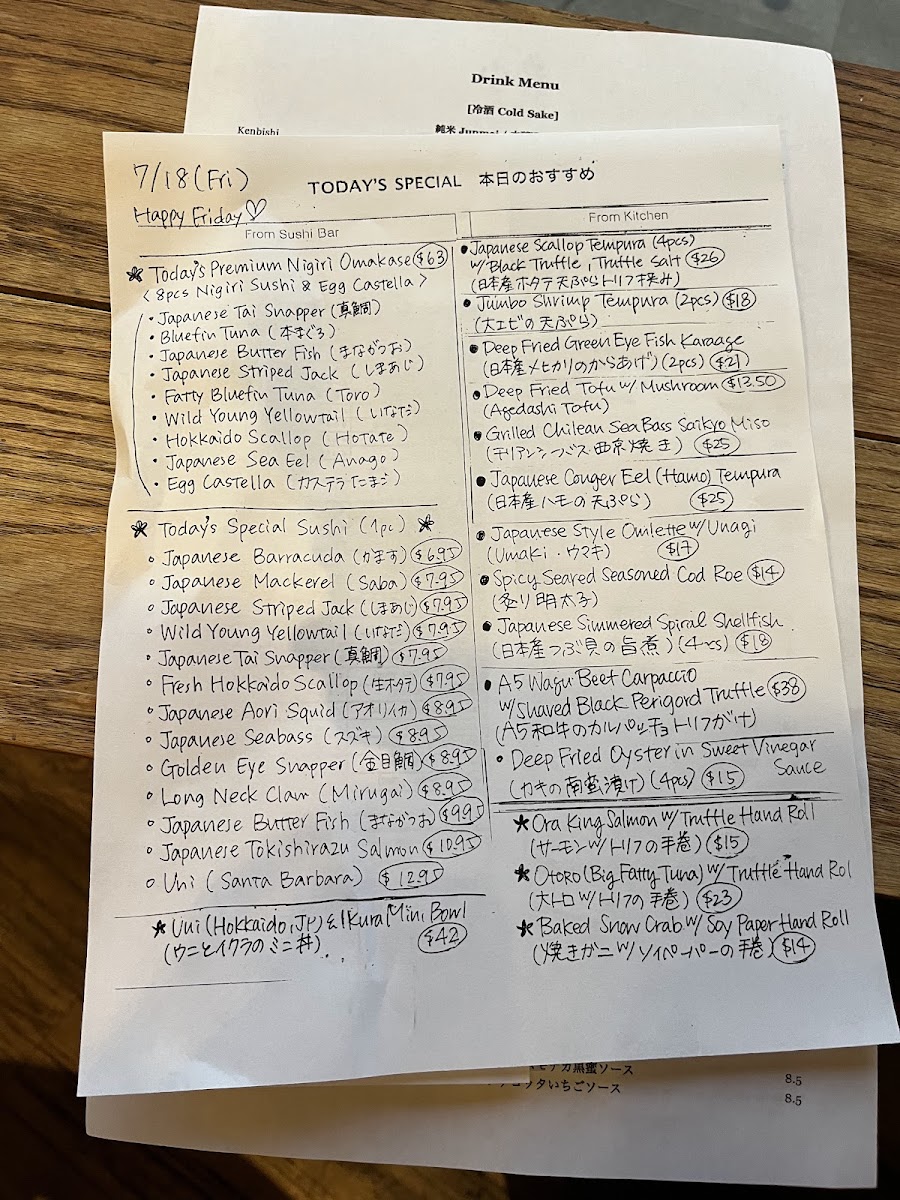 Drink Menu
[冷酒 Cold Sake]
Kenbishi
純米 Junmai
7/18 (Fri)
TODAY'S SPECIAL 本日のおすすめ
Happy Friday♡
From Sushi Bar
★ Today's Premium Nigiri Omakase $63
< 8pcs Nigiri Sushi & Egg Castella >
• Japanese Tai Snapper (真鯛)
• Bluefin Tuna (本まぐろ)
• Japanese Butter Fish (まながつお)
• Japanese Striped Jack (しまあじ)
• Fatty Bluefin Tuna (Toro)
• Wild Young Yellowtail (いなだ)
• Hokkaido Scallop (Hotate)
• Japanese Sea Eel (Anago)
• Egg Castella (カステラたまご)
★ Today's Special Sushi (1pc) ★
• Japanese Barracuda (かます) $6.95
• Japanese Mackerel (Saba) $7.95
• Japanese Striped Jack (しまあじ) $7.95
• Wild Young Yellowtail (いなだ) $7.95
• Japanese Tai Snapper (真鯛) $7.95
• Fresh Hokkaido Scallop (生ホタテ) $7.95
• Japanese Aori Squid (アオリイカ) $8.95
• Japanese Seabass (スズキ) $8.95
• Golden Eye Snapper (金目鯛) $8.95
• Long Neck Clam (Mirugai) $8.95
• Japanese Butter Fish (まながつお) $9.95
• Japanese Tokishirazu Salmon $10.95
• Uni (Santa Barbara) $12.95
★ Uni (Hokkaido, JP) & Ikura Mini Bowl
(ウニとイクラのミニ丼) $42
From Kitchen
• Japanese Scallop Tempura (4pcs)
w/Black Truffle, Truffle Salt $26
(日本産ホタテ天ぷらトリフ挟み)
• Jumbo Shrimp Tempura (2pcs) $18
(大エビの天ぷら)
• Deep Fried Green Eye Fish Karaage
(日本産メヒカリのからあげ) (2pcs) $21
• Deep Fried Tofu w/ Mushroom $13.50
(Agedashi Tofu)
• Grilled Chilean SeaBass Saikyo Miso
(チリアンシーバス西京焼き) $25
• Japanese Conger Eel (Hamo) Tempura
(日本産ハモの天ぷら) $25
• Japanese Style Omlette w/Unagi
(Umaki・ウマキ) $17
• Spicy Seared Seasoned Cod Roe $14
(炙り明太子)
• Japanese Simmered Spiral Shellfish
(日本産つぶ貝の旨煮) $18
• A5 Wagu Beet Carpaccio
w/Shaved Black Perigord Truffle $38
(A5和牛のカルパッチョトリフがけ)
• Deep Fried Oyster in Sweet Vinegar
Sauce
(カキの南蛮漬け) (4pcs) $15
★ Ora King Salmon w/ Truffle Hand Roll
(サーモンw/トリフの手巻) $15
★ Otoro (Big Fatty Tuna) w/ Truffle Hand Rol
(大トロw/トリフの手巻) $23
★ Baked Snow Crab w/ Soy Paper Hand Roll
(焼きガニw/ソイペーパーの手巻) $14
黒蜜ソース
8.5
いちごソース
8.5